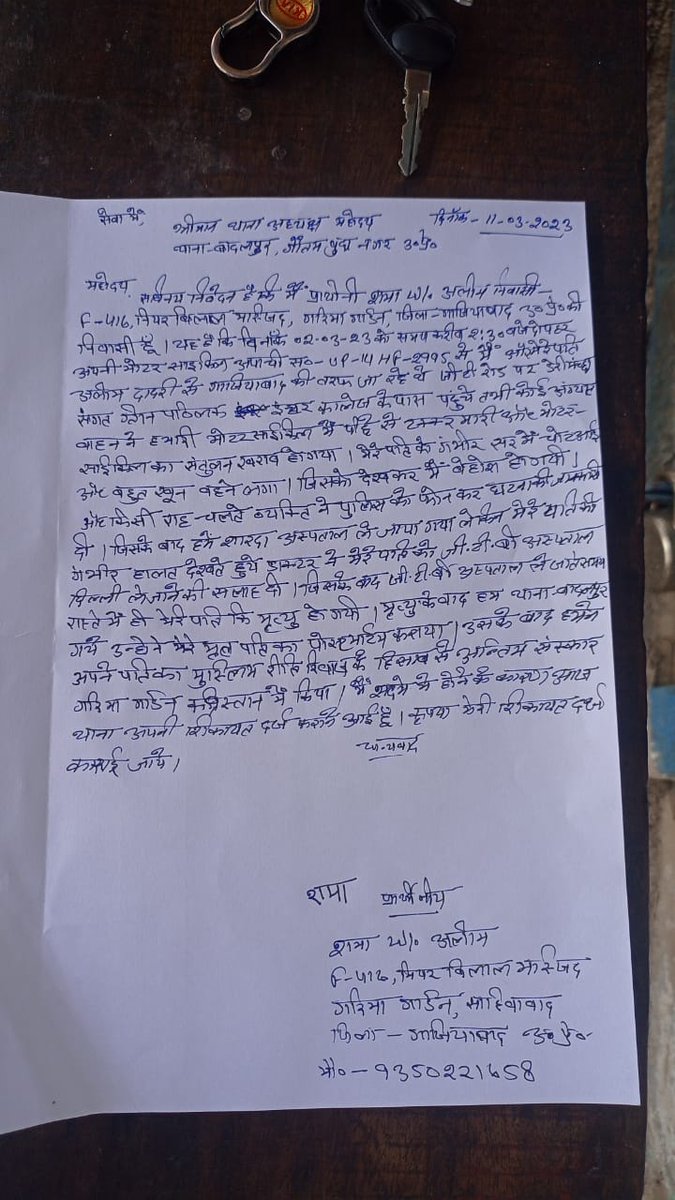 सेवा में,
श्रीमान थाना अध्यक्ष महोदय दिनाँक - 11-03-2023
थाना-बादलपुर, गौतम बुद्ध नगर उ०प्र०
महोदय,
सविनय निवेदन है कि मैं प्रार्थी शमा W/० अलीम निवासी-
F-416, नियर बिलाल मस्जिद, गरिमा गार्डन, जिला-गाजियाबाद उ०प्र० की
निवासी हूँ। यह है कि दिनाँक ०2-०3-23 को समय करीब 2:3० बजे दोपहर
अपनी मोटर साइकिल अपाची स०- UP-14 HP-2995 से मैं और मेरे पति
अलीम दादरी से गाजियाबाद की तरफ जा रहे थे जी टी रोड पर डेरी मच्छा
संगत पब्लिक ईश्वर कालेज के पास पहुंचे तभी कोई अज्ञात
वाहन ने हमारी मोटर साइकिल में पीछे से टक्कर मारी और मोटर-
साईकिल का संतुलन खराब हो गया। मेरे पति के गंभीर सर में चोट आई
और बहुत खून बहने लगा। जिसको देखकर मैं बेहोश हो गयी।
और किसी राह-चलते व्यक्ति ने पुलिस को फोन कर घटना की जानकारी
दी। जिसके बाद हमें शारदा अस्पताल ले जाया गया लेकिन मेरे पति की
गंभीर हालत देखते हुये डाक्टर ने मेरे पति को जी.टी.बी अस्पताल
दिल्ली ले जाने की सलाह दी। जिसके बाद जी.टी.बी अस्पताल ले जाते समय
रास्ते में ही मेरे पति कि मृत्यु हो गयी। मृत्यु के बाद हम थाना-बादलपुर
गये उन्होने मेरे मृत पति का पोस्टमार्टम कराया। उसके बाद हमने
अपने पति का मुस्लिम रीति रिवाज के हिसाब से अन्तिम संस्कार
गरिमा गार्डन कब्रिस्तान में किया। मैं सदमे में होने के कारण आज
थाना अपनी शिकायत दर्ज कराने आई हूँ। कृपया मेरी शिकायत दर्ज
कराई जाये।
धन्यवाद
शमा प्रार्थीनीय
शमा W/० अलीम
F-416, नियर बिलाल मस्जिद
गरिमा गार्डन, साहिबाबाद
जिला - गाजियाबाद उ०प्र०
मो० - 9350221658